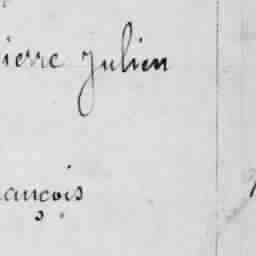 ierre Julien
ançois